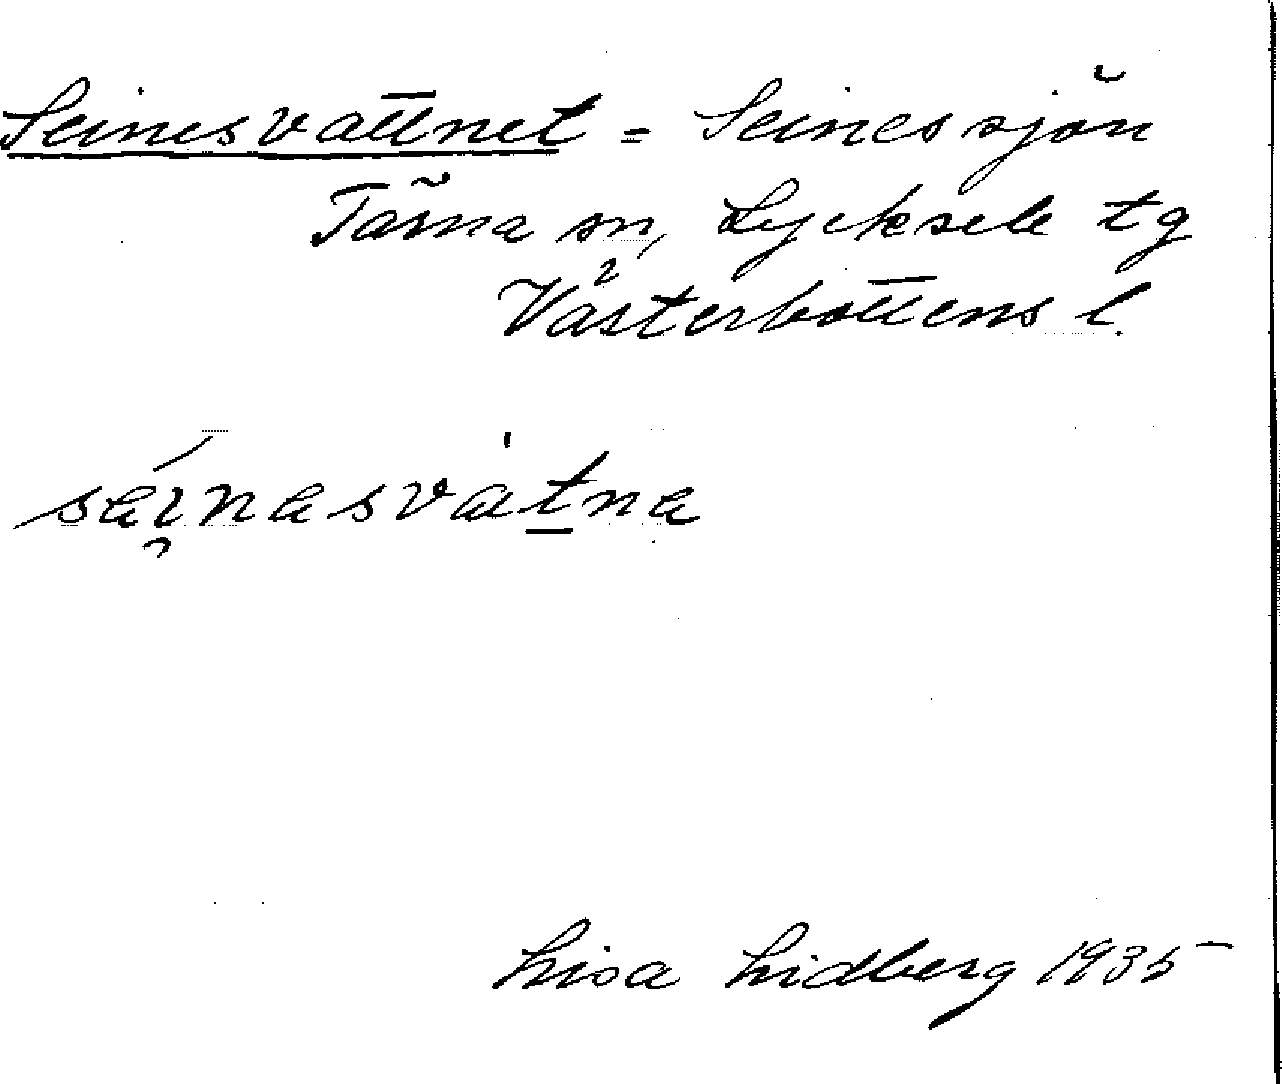 Seinesvattnet = Seinessjön
Tärna sn, Lycksele tg
Västerbottens l.
Lisa Lidberg 1935